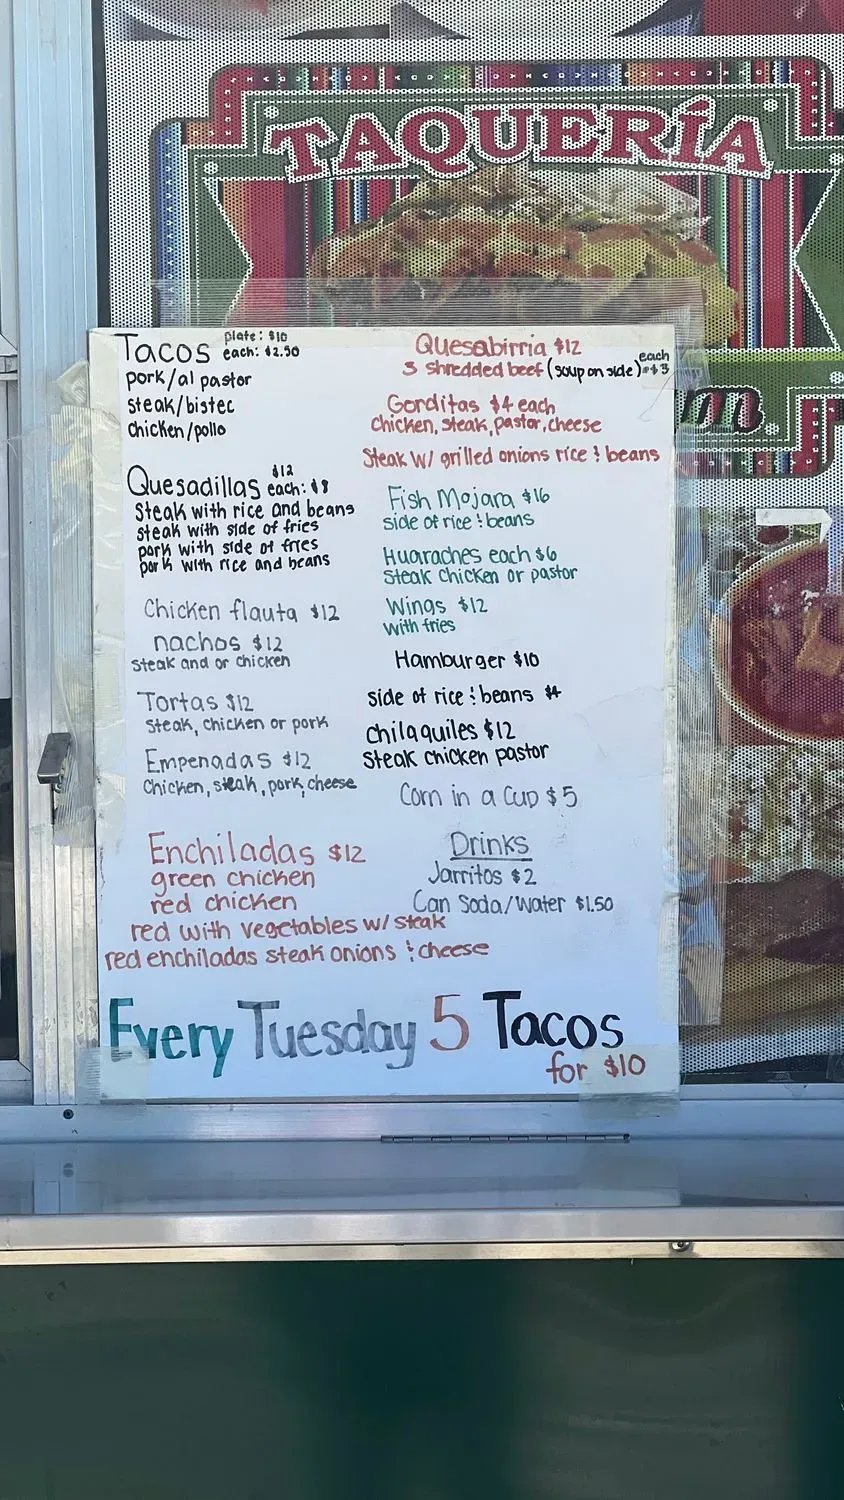 TAQUERÍA
Tacos plate: $10
each: $2.50
pork/al pastor
steak/bistec
chicken/pollo
Quesadillas $12
each: $8
Steak with rice and beans
steak with side of fries
pork with side of fries
pork with rice and beans
Chicken flauta $12
nachos $12
Steak and or chicken
Tortas $12
Steak, chicken or pork
Empenadas $12
Chicken, steak, pork, cheese
Enchiladas $12
green chicken
red chicken
red with vegetables w/ steak
red enchiladas steak onions & cheese
Quesabirria $12
3 shredded beef (soup on side) each = $3
Gorditas $4 each
Chicken, steak, pastor, cheese
Steak w/ grilled onions rice & beans
Fish Mojara $16
side of rice & beans
Huaraches each $6
Steak chicken or pastor
Wings $12
with fries
Hamburger $10
side of rice & beans $4
Chilaquiles $12
Steak chicken pastor
Corn in a Cup $5
Drinks
Jarritos $2
Can Soda/Water $1.50
Every Tuesday 5 Tacos
for $10